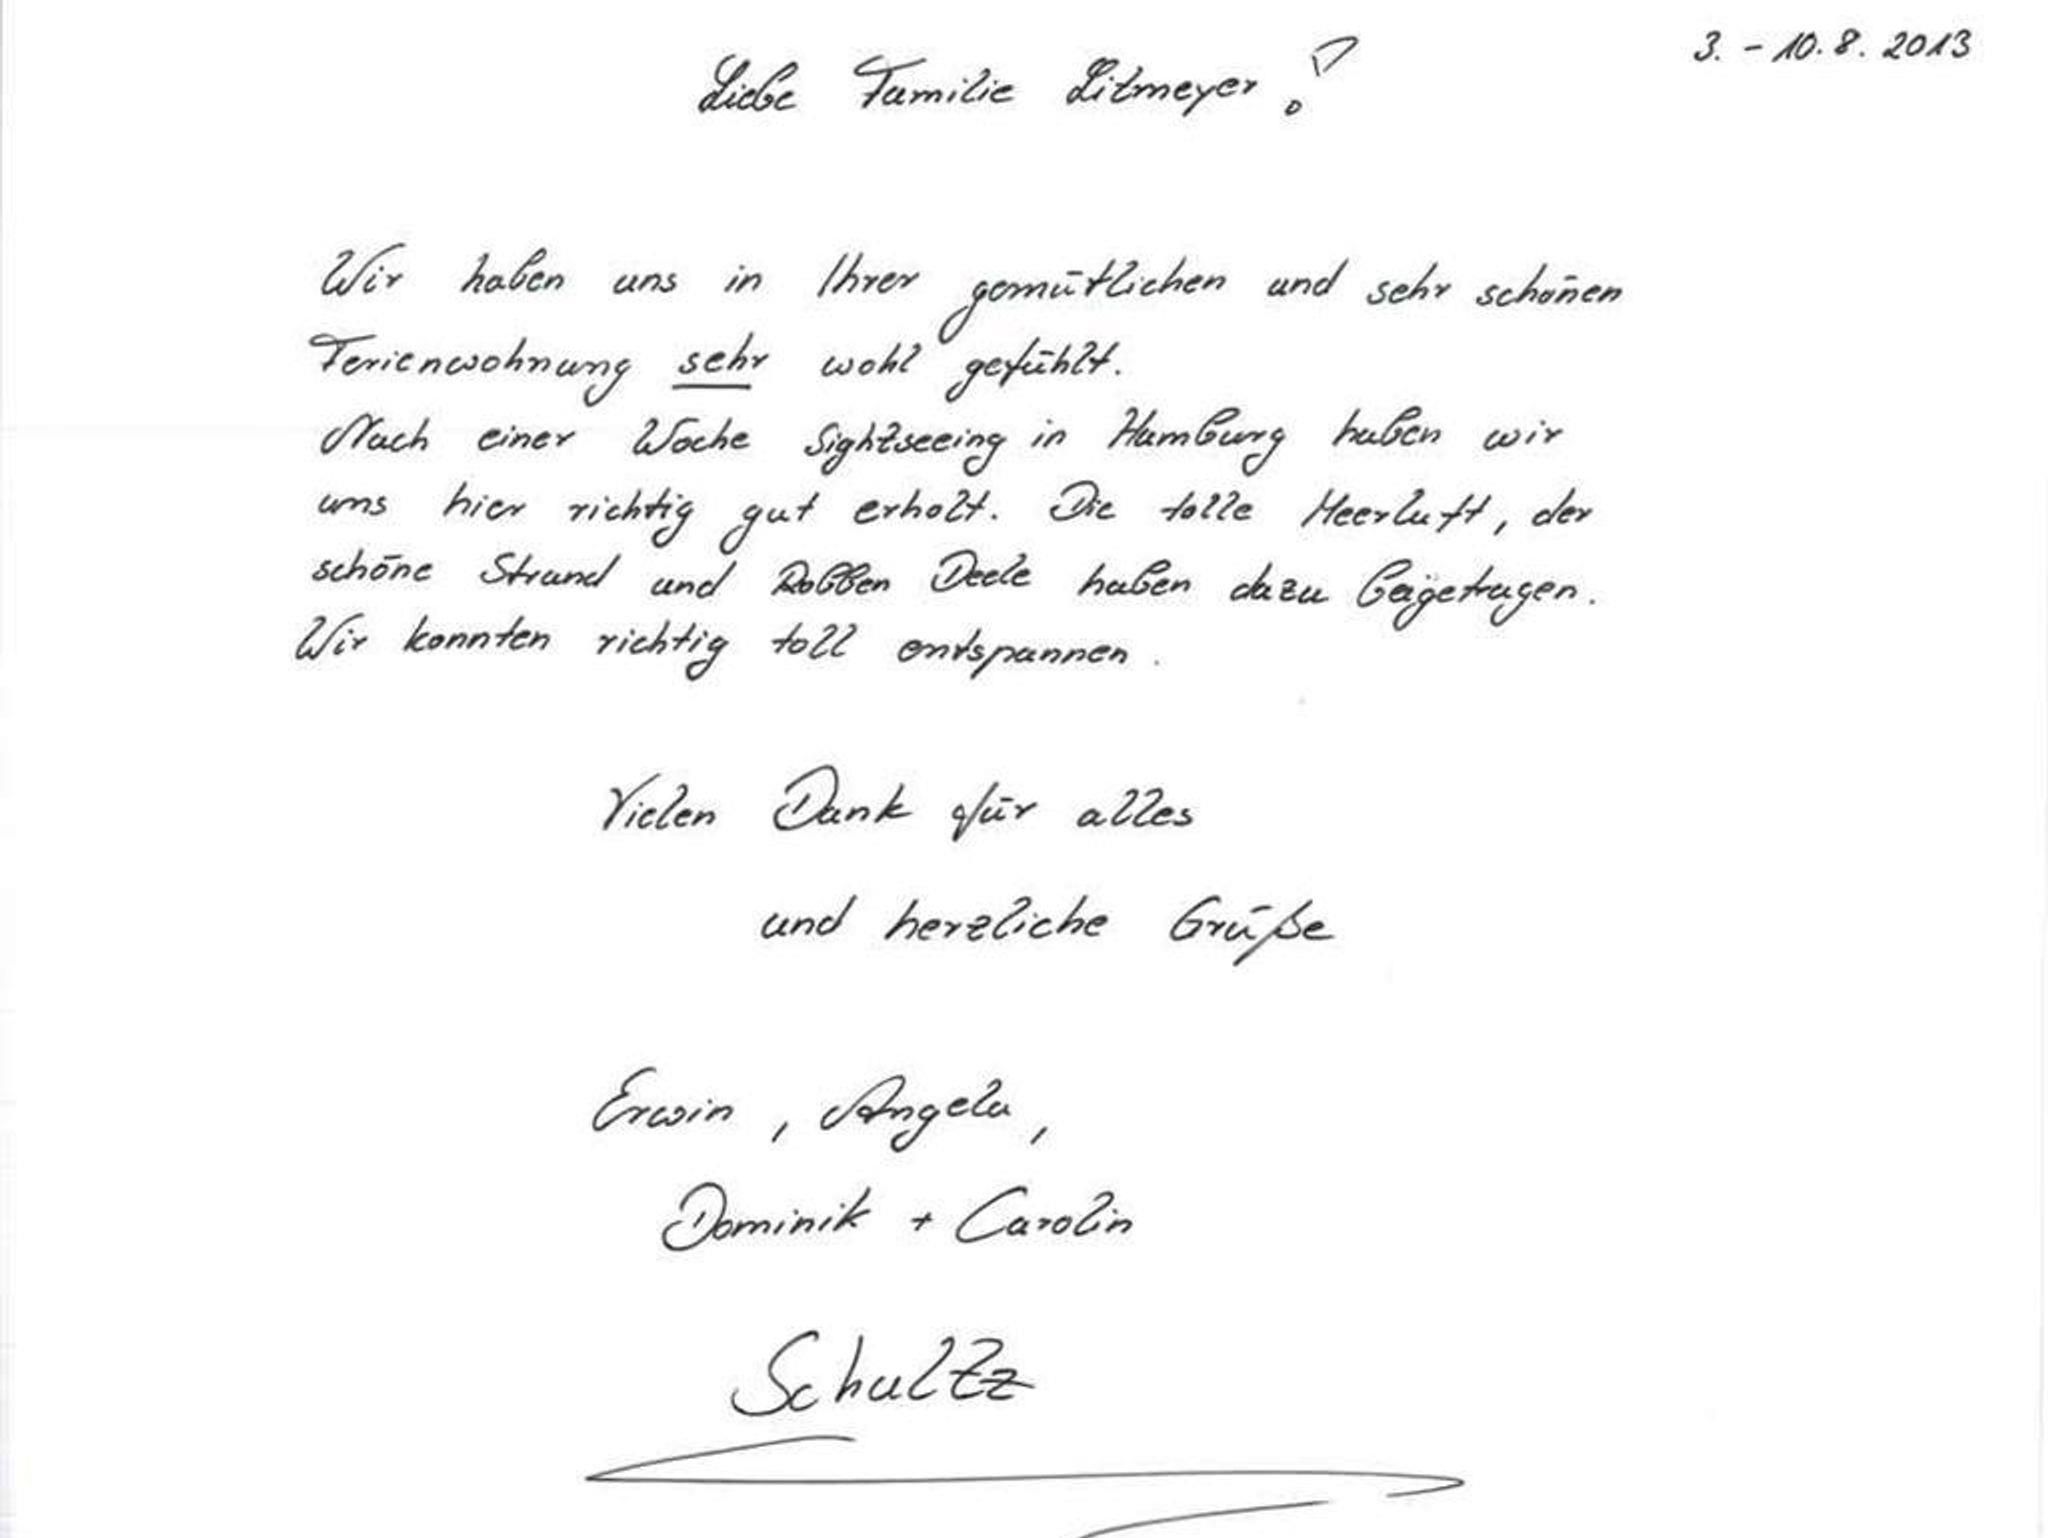 3. - 10.8. 2013
Liebe Familie Litmeyer!
Wir haben uns in Ihrer gemütlichen und sehr schönen
Ferienwohnung sehr wohl gefühlt.
Nach einer Woche Sightseeing in Hamburg haben wir
uns hier richtig gut erholt. Die tolle Meerluft, der
schöne Strand und Robben Deele haben dazu beigetragen.
Wir konnten richtig toll entspannen.
Vielen Dank für alles
und herzliche Grüße
Erwin, Angela,
Dominik + Carolin
Schultz